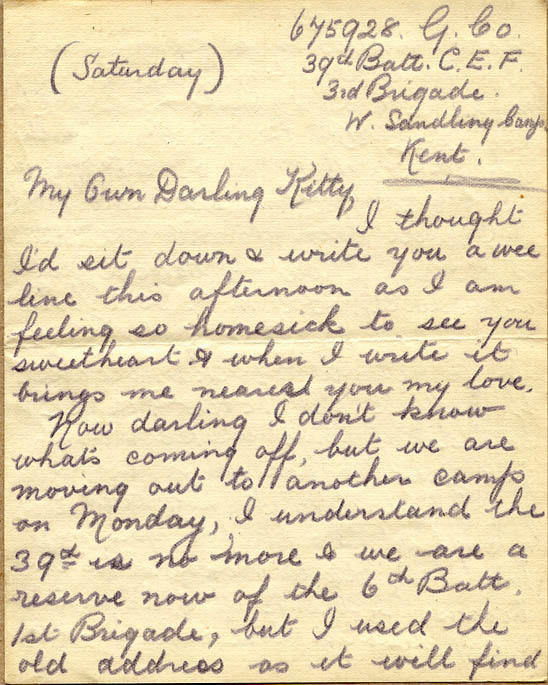 675928. G. Co.
39th Batt. C. E. F.
(Saturday)
3rd Brigade.
W. Sandling Camp
Kent.
My Own Darling Kitty,
I thought
I'd sit down & write you a wee
line this afternoon as I am
feeling so homesick to see you
sweetheart & when I write it
brings me nearest you my love.
Now darling I don't know
whats coming off, but we are
moving out to another camp
on Monday, I understand the
39th is no more & we are a
reserve now of the 6th Batt.
1st Brigade, but I used the
old address as it will find